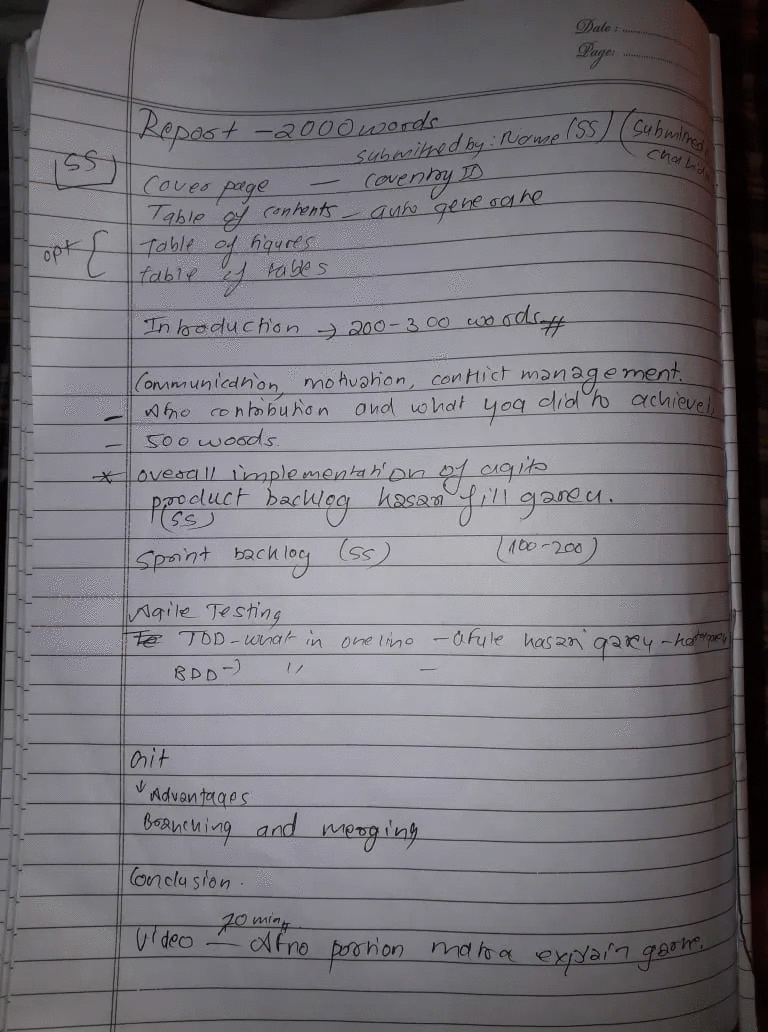 Date:
Page:
Report - 2000 words
submitted by: Name (SS) (submitted
SS
Cover page — Coventry ID
Table of contents - auto generate
opt { Table of figures
table of tables
Introduction → 200-300 words
Communication, motivation, conflict management.
- Afno contribution and what you did to achieve
- 500 words.
* overall implementation of
product backlog kasari fill gareu.
(SS)
Sprint backlog (SS) (100-200)
Agile Testing
TDD - what in one line - afule kasari garey -
BDD → ,, -
Git
↓ Advantages
Branching and merging
Conclusion.
Video — Afno portion matra explain garne.